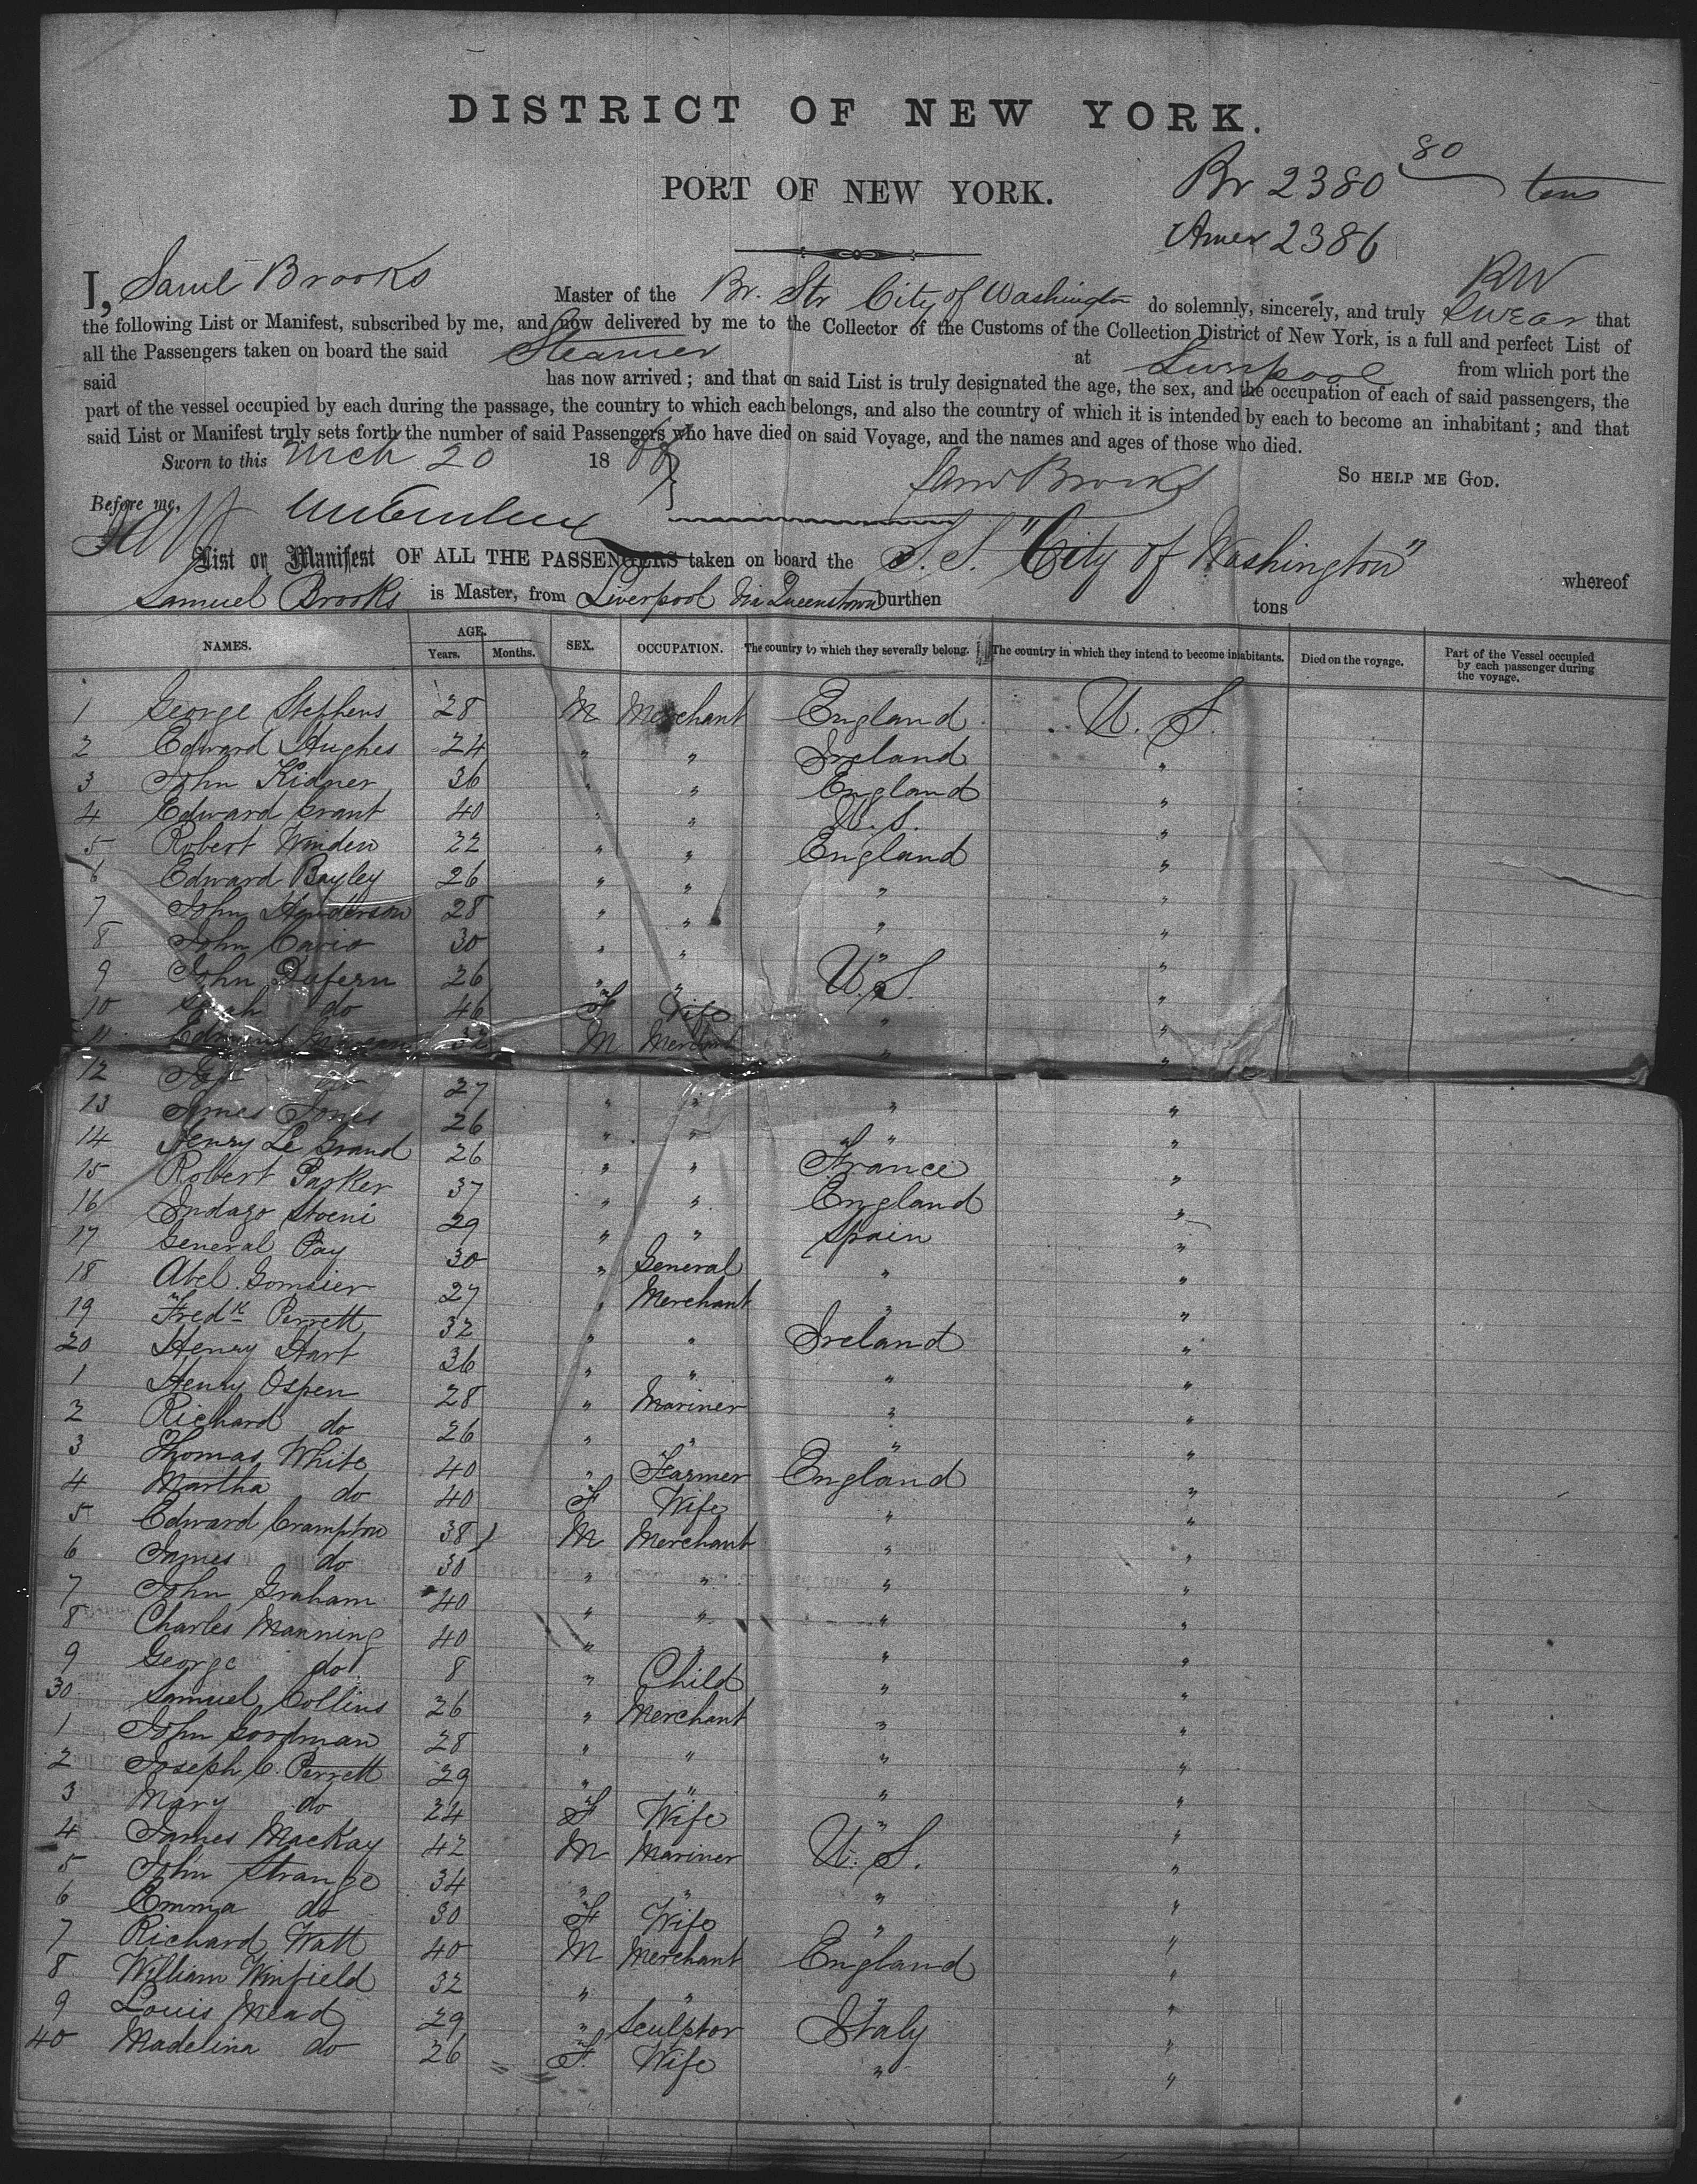 DISTRICT OF NEW YORK.
PORT OF NEW YORK.
Br 2380 80 tons
Amer 2386
RW
I, Saml Brooks Master of the Br. Str City of Washington do solemnly, sincerely, and truly swear that
the following List or Manifest, subscribed by me, and now delivered by me to the Collector of the Customs of the Collection District of New York, is a full and perfect List of
all the Passengers taken on board the said Steamer at Liverpool from which port the
said has now arrived; and that on said List is truly designated the age, the sex, and the occupation of each of said passengers, the
part of the vessel occupied by each during the passage, the country to which each belongs, and also the country of which it is intended by each to become an inhabitant; and that
said List or Manifest truly sets forth the number of said Passengers who have died on said Voyage, and the names and ages of those who died.
Sworn to this Mch 20 18
So help me God.
Saml Brooks
Before me,
List or Manifest OF ALL THE PASSENGERS taken on board the S.S. "City of Washington" whereof
Samuel Brooks is Master, from Liverpool via Queenstown burthen tons
NAMES. AGE. Years. Months. SEX. OCCUPATION. The country to which they severally belong. The country in which they intend to become inhabitants. Died on the voyage. Part of the Vessel occupied by each passenger during the voyage.
1 George Stephens 28 M Merchant England U.S.
2 Edward Hughes 24 " " Ireland "
3 John Kidner 36 " " England "
4 Edward Grant 40 " " U.S. "
5 Robert Winden 22 " " England "
6 Edward Bayley 26 " " " "
7 John Henderson 28 " " " "
8 John 30 " " " "
9 John Dufern 26 " " U.S. "
10 Sarah do 46 F Wife " "
11 Edmund 32 M Merchant " "
12 27 " " " "
13 James Jones 26 " " " "
14 Henry Le Grand 26 " " France "
15 Robert Parker 37 " " England "
16 Indazo Stoeni 29 " " Spain "
17 General Pay 30 " General " "
18 Abel Gomsier 27 " Merchant " "
19 Fredk Perrett 32 " " Ireland "
20 Henry Hart 36 " " " "
1 Henry Ospen 28 " Mariner " "
2 Richard do 26 " " " "
3 Thomas White 40 " Farmer England "
4 Martha do 40 F Wife " "
5 Edward Crampton 38 M Merchant " "
6 James do 30 " " " "
7 John Graham 40 " " " "
8 Charles Manning 40 " " " "
9 George do 8 " Child " "
30 Samuel Collins 26 " Merchant " "
1 John Goodman 28 " " " "
2 Joseph C. Perrett 29 " " " "
3 Mary do 24 F Wife " "
4 James MacKay 42 M Mariner U.S. "
5 John Strange 34 " " " "
6 Emma do 30 F Wife " "
7 Richard Watt 40 M Merchant England "
8 William Winfield 32 " " " "
9 Louis Mead 29 " Sculptor Italy "
40 Madelina do 26 F Wife " "